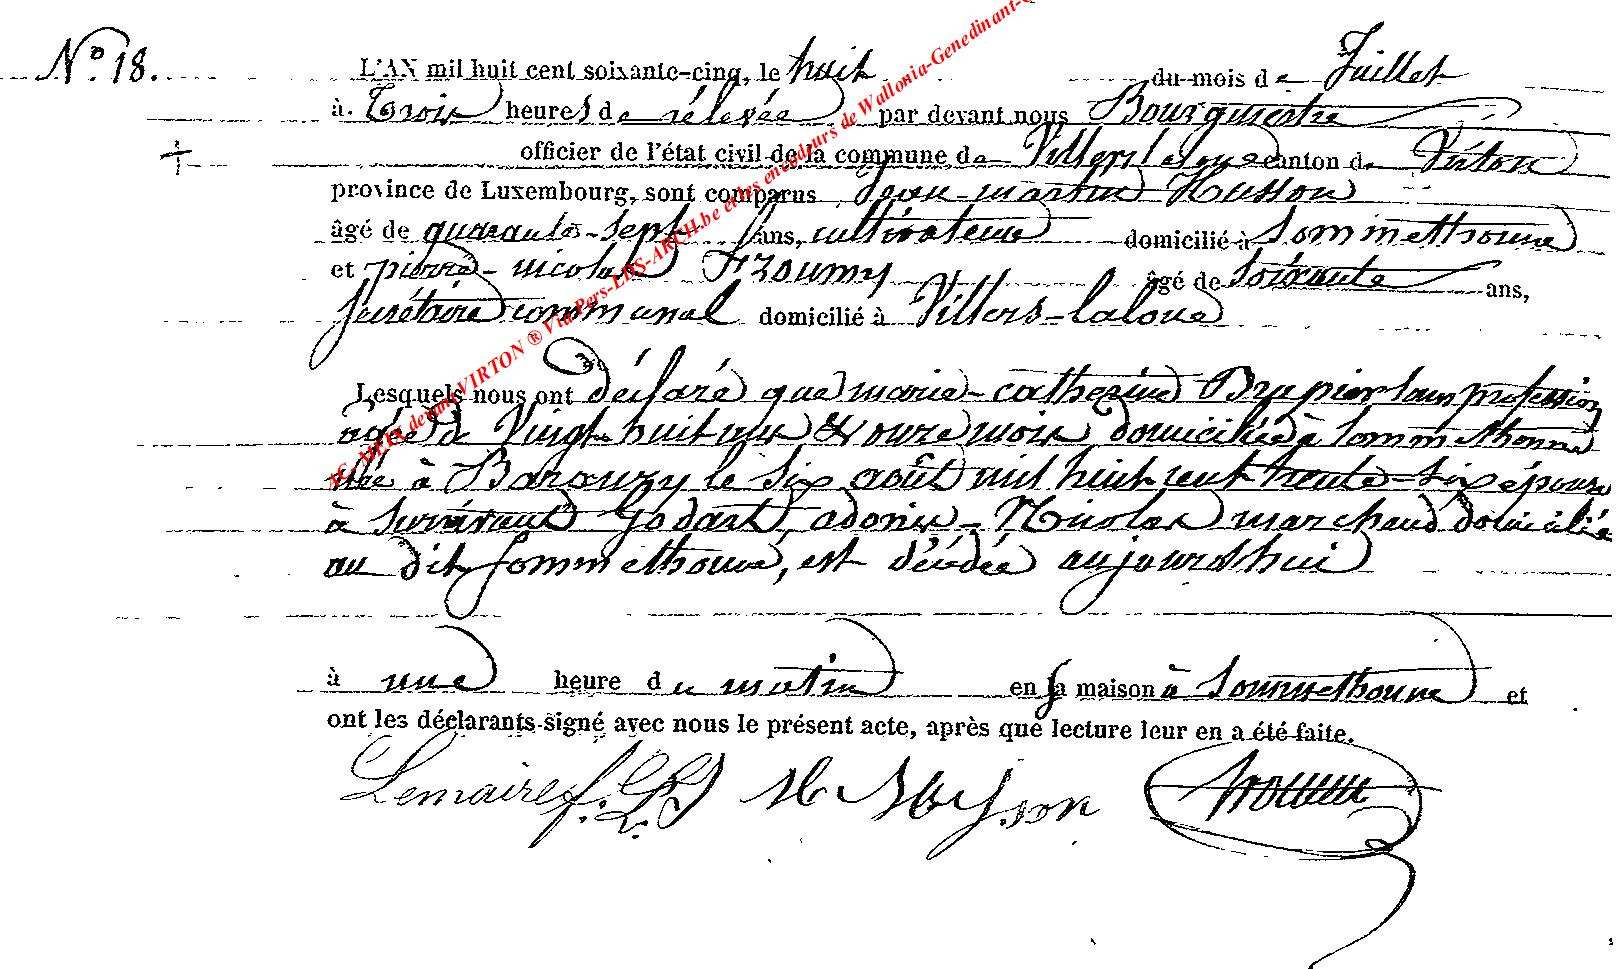 N° 18.
L'AN mil huit cent soixante-cinq, le huit du mois de Juillet
à Trois heures de rélevée par devant nous Bourgmestre
officier de l'état civil de la commune de Villers la loue canton de Virton
province de Luxembourg, sont comparus Jean-martin Husson
âgé de quarante-sept ans, cultivateur domicilié à Sommethonne
et pierre-nicolas âgé de soixante ans,
secrétaire communal domicilié à Villers-laloue
Lesquels nous ont déclaré que marie-catherine sans profession
agée de Vingt huit ans & onze mois domiciliée à Sommethonne
née à Baranzy le six août mil huit cent trente-six épouse
à survivant Godart, adonis-Nicolas marchand domicilié
au dit Sommethonne, est décédée aujourd'hui
à une heure du matin en sa maison à Sommethonne et
ont les déclarants signé avec nous le présent acte, après que lecture leur en a été faite.
Lemaire Husson
VIRTON ® Via Pers-LDS-ARCH.be et les encodeurs de Wallonia-Genedinant-